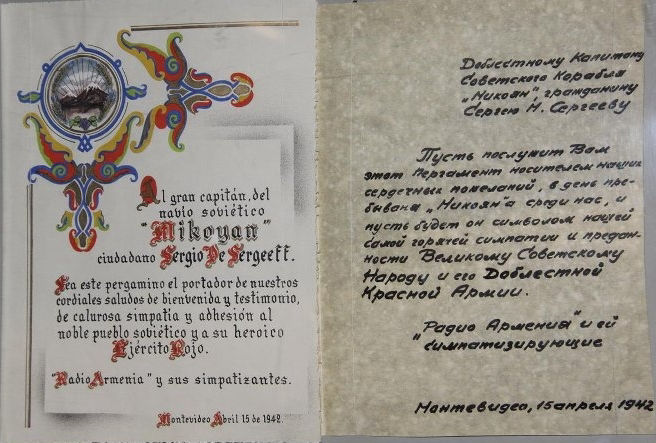 Al gran capitán, del
navío soviético
"Mikoyan"
ciudadano Sergio De Sergeeff.
Sea este pergamino el portador de nuestros
cordiales saludos de bienvenida y testimonio,
de calurosa simpatía y adhesión al
noble pueblo soviético y a su heroico
Ejército Rojo.
"Radio Armenia" y sus simpatizantes.
Montevideo Abril 15 de 1942.
Доблестному Капитану
Советского Корабля
„Микоян", гражданину
Сергею Н. Сергееву
Пусть послужит Вам
этот Пергамент носителем наших
сердечных пожеланий, в день пре-
бывана „Микоян"а среди нас, и
пусть будет он символом нашей
самой горячей симпатии и предан-
ности Великому Советскому
Народу и его Доблестной
Красной Армии.
„Радио Армения" и ей
симпатизирующие
Монтевидео, 15 апреля 1942